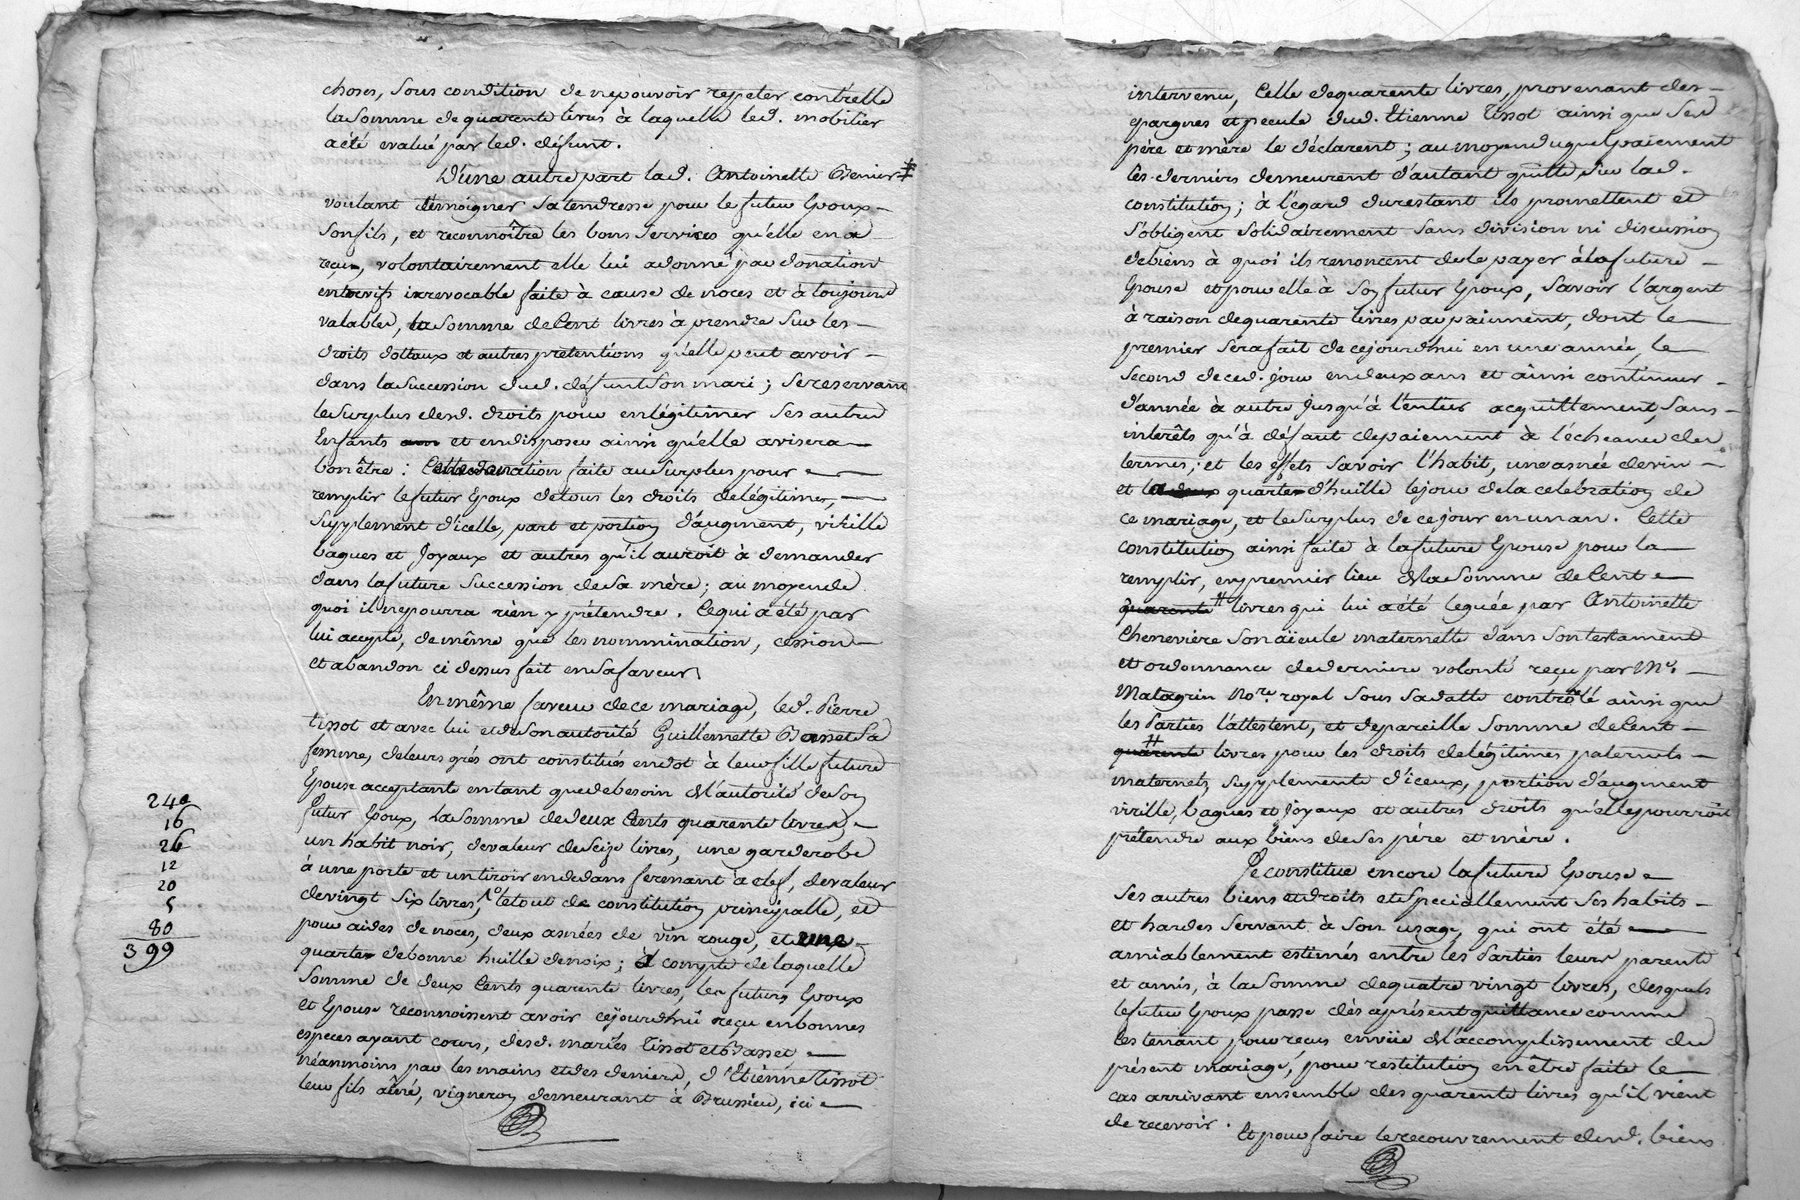 choses, sous condition de ne pouvoir repeter contr'elle
la somme de quarente livres à laquelle led. mobilier
a été evalué par led. défunt.
D'une autre part lad. Antoinette Benier #
voulant témoigner sa tendresse pour le futur Epoux
son fils, et reconnoître les bons services qu'elle en a
reçu, volontairement elle lui a donné par donation
entrevifs irrevocable faite à cause de noces et à toujours
valables, la somme de Cent livres à prendre sur les
droits dottaux et autres prétentions qu'elle peut avoir
dans la succession dud. défunt son mari; se reservant
le surplus desd. droits pour en légitimer ses autres
Enfants et en disposer ainsi qu'elle avisera
bon être: Cette donation faite au surplus pour
remplir le futur Epoux de tous les droits de légitimes,
supplement d'icelle, part et portion d'augment, virille
bagues et Joyaux et autres qu'il auroit à demander
dans la future succession de sa mère; au moyen de
quoi il ne pourra rien y prétendre. Ce qui a été par
lui accepté, de même que les nommination, cession
et abandon ci dessus fait en sa faveur
En même faveur de ce mariage, led. Pierre
Tissot et avec lui et de son autorité Guillemette Basset sa
femme, de leurs grés ont constitués en dot à leur fille future
Epouse acceptante en tant que de besoin de l'autorité de son
futur Epoux, la somme de deux Cents quarente livres,
un habit noir, de valeur de seize livres, une garderobe
à une porte et un tiroir en dedans fermant à clef, de valeur
de vingt six livres, le tout de constitution principalle, et
pour aides de noces, deux asnées de vin rouge, et une
quarte de bonne huille de noix; à compte de laquelle
somme de deux Cents quarente livres, les futurs Epoux
et Epouse reconnoissent avoir cejourd'hui reçu en bonnes
especes ayant cours, desd. mariés Tissot et Basset
néanmoins par les mains et des deniers, d'Etienne Tissot
leur fils aîné, vigneron demeurant à Brussieu, ici
240
16
26
12
20
5
80
399
intervenu, Celle de quarente livres, provenant des
epargnes et pecule dud. Etienne Tissot ainsi que ses
père et mère le déclarent; au moyen duquel paiement
les derniers demeurent d'autant quitte sur lad.
constitution; à l'égard du restant ils promettent et
s'obligent solidairement sans division ni discussion
de biens à quoi ils renoncent de le payer à la future
Epouse et pour elle à son futur Epoux, savoir l'argent
à raison de quarente livres par paiement, dont le
premier sera fait de cejourd'hui en une année, le
second de ced. jour en deux ans et ainsi continuer
d'année à autre jusqu'à l'entier acquittement, sans
interêts qu'à défaut de paiement à l'écheance des
termes; et les effets savoir l'habit, une asnée de vin
et la quarte d'huille le jour de la celebration de
ce mariage, et le surplus de ce jour en un an. Cette
constitution ainsi faite à la future Epouse pour la
remplir, en premier lieu de la somme de Cent
quarente # livres qui lui a été leguée par Antoinette
Chenevière son aïeule maternelle dans son testament
et ordonnance de derniere volonté reçu par Me.
Matagrin Nore. royal sous sa datte contrôlé ainsi que
les Parties l'attestent, et de pareille somme de Cent
quarente # livres pour les droits de légitimes paternels
maternels, supplements d'iceux, portion d'augment
virille, bagues et Joyaux et autres droits qu'elle pourroit
prétendre aux biens de ses père et mère.
Se constitue encore la future Epouse
ses autres biens et droits et speciallement ses habits
et hardes servant à son usage, qui ont été
amiablement estimés entre les Parties leurs parents
et amis, à la somme de quatre vingt livres, desquels
le futur Epoux passe dès àprésent quittance comme
les tenant pour reçus en vüe de l'accomplissement du
présent mariage, pour restitution en être faite le
cas arrivant ensemble des quarente livres qu'il vient
de recevoir.
Et pour faire le recouvrement desd. biens